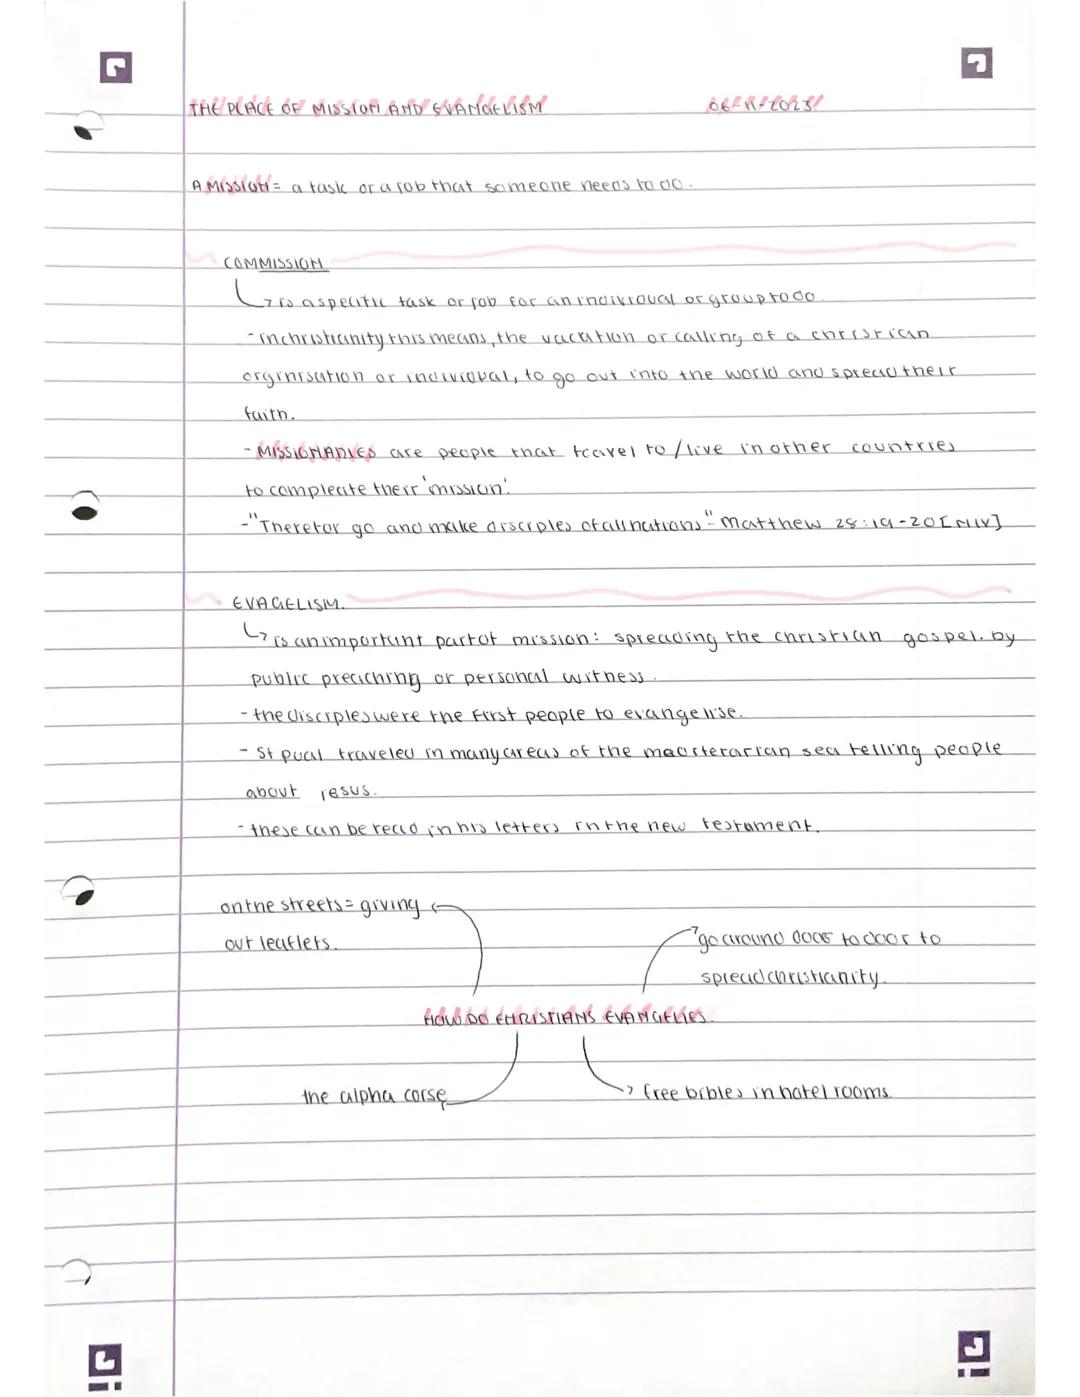 THE PLACE OF MISSION AND EVANGELISM 06-11-2023
A MISSION = a task or a job that someone needs to do.
COMMISSION
↳ is a specific task or job for an individual or group to do.
- in christianity this means, the vacation or calling of a christian
orginisation or individual, to go out into the world and spread their
faith.
- MISSIONARIES are people that travel to / live in other countries
to compleate their 'mission'.
- "Therefor go and make disciples of all nations" - Matthew 28:19-20 [NIV]
EVAGELISM.
↳ is an important part of mission: spreading the christian gospel. by
public preaching or personal witness.
- the disciples were the first people to evangelise.
- St pual traveled in many areas of the mediterarian sea telling people
about jesus.
- these can be read in his letters in the new testament.
on the streets = giving
out leaflets.
go around door to door to
spread christianity.
HOW DO CHRISTIANS EVANGELIES.
the alpha corse
free bibles in hotel rooms.